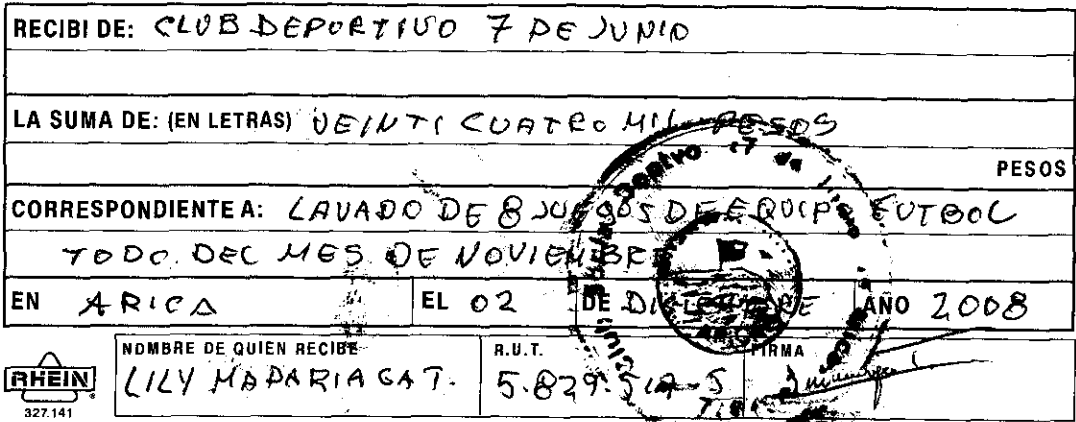 RECIBI DE: CLUB DEPORTIVO 7 DE JUNIO
LA SUMA DE: (EN LETRAS) VEINTI CUATRO MIL PESOS
PESOS
CORRESPONDIENTE A: LAVADO DE 8 JUEGOS DE EQUIPO FUTBOL
TODO DEL MES DE NOVIEMBRE
EN ARICA EL 02 DE DICIEMBRE AÑO 2008
NOMBRE DE QUIEN RECIBE R.U.T. FIRMA
RHEIN LILY MADARIAGA T.
327.141